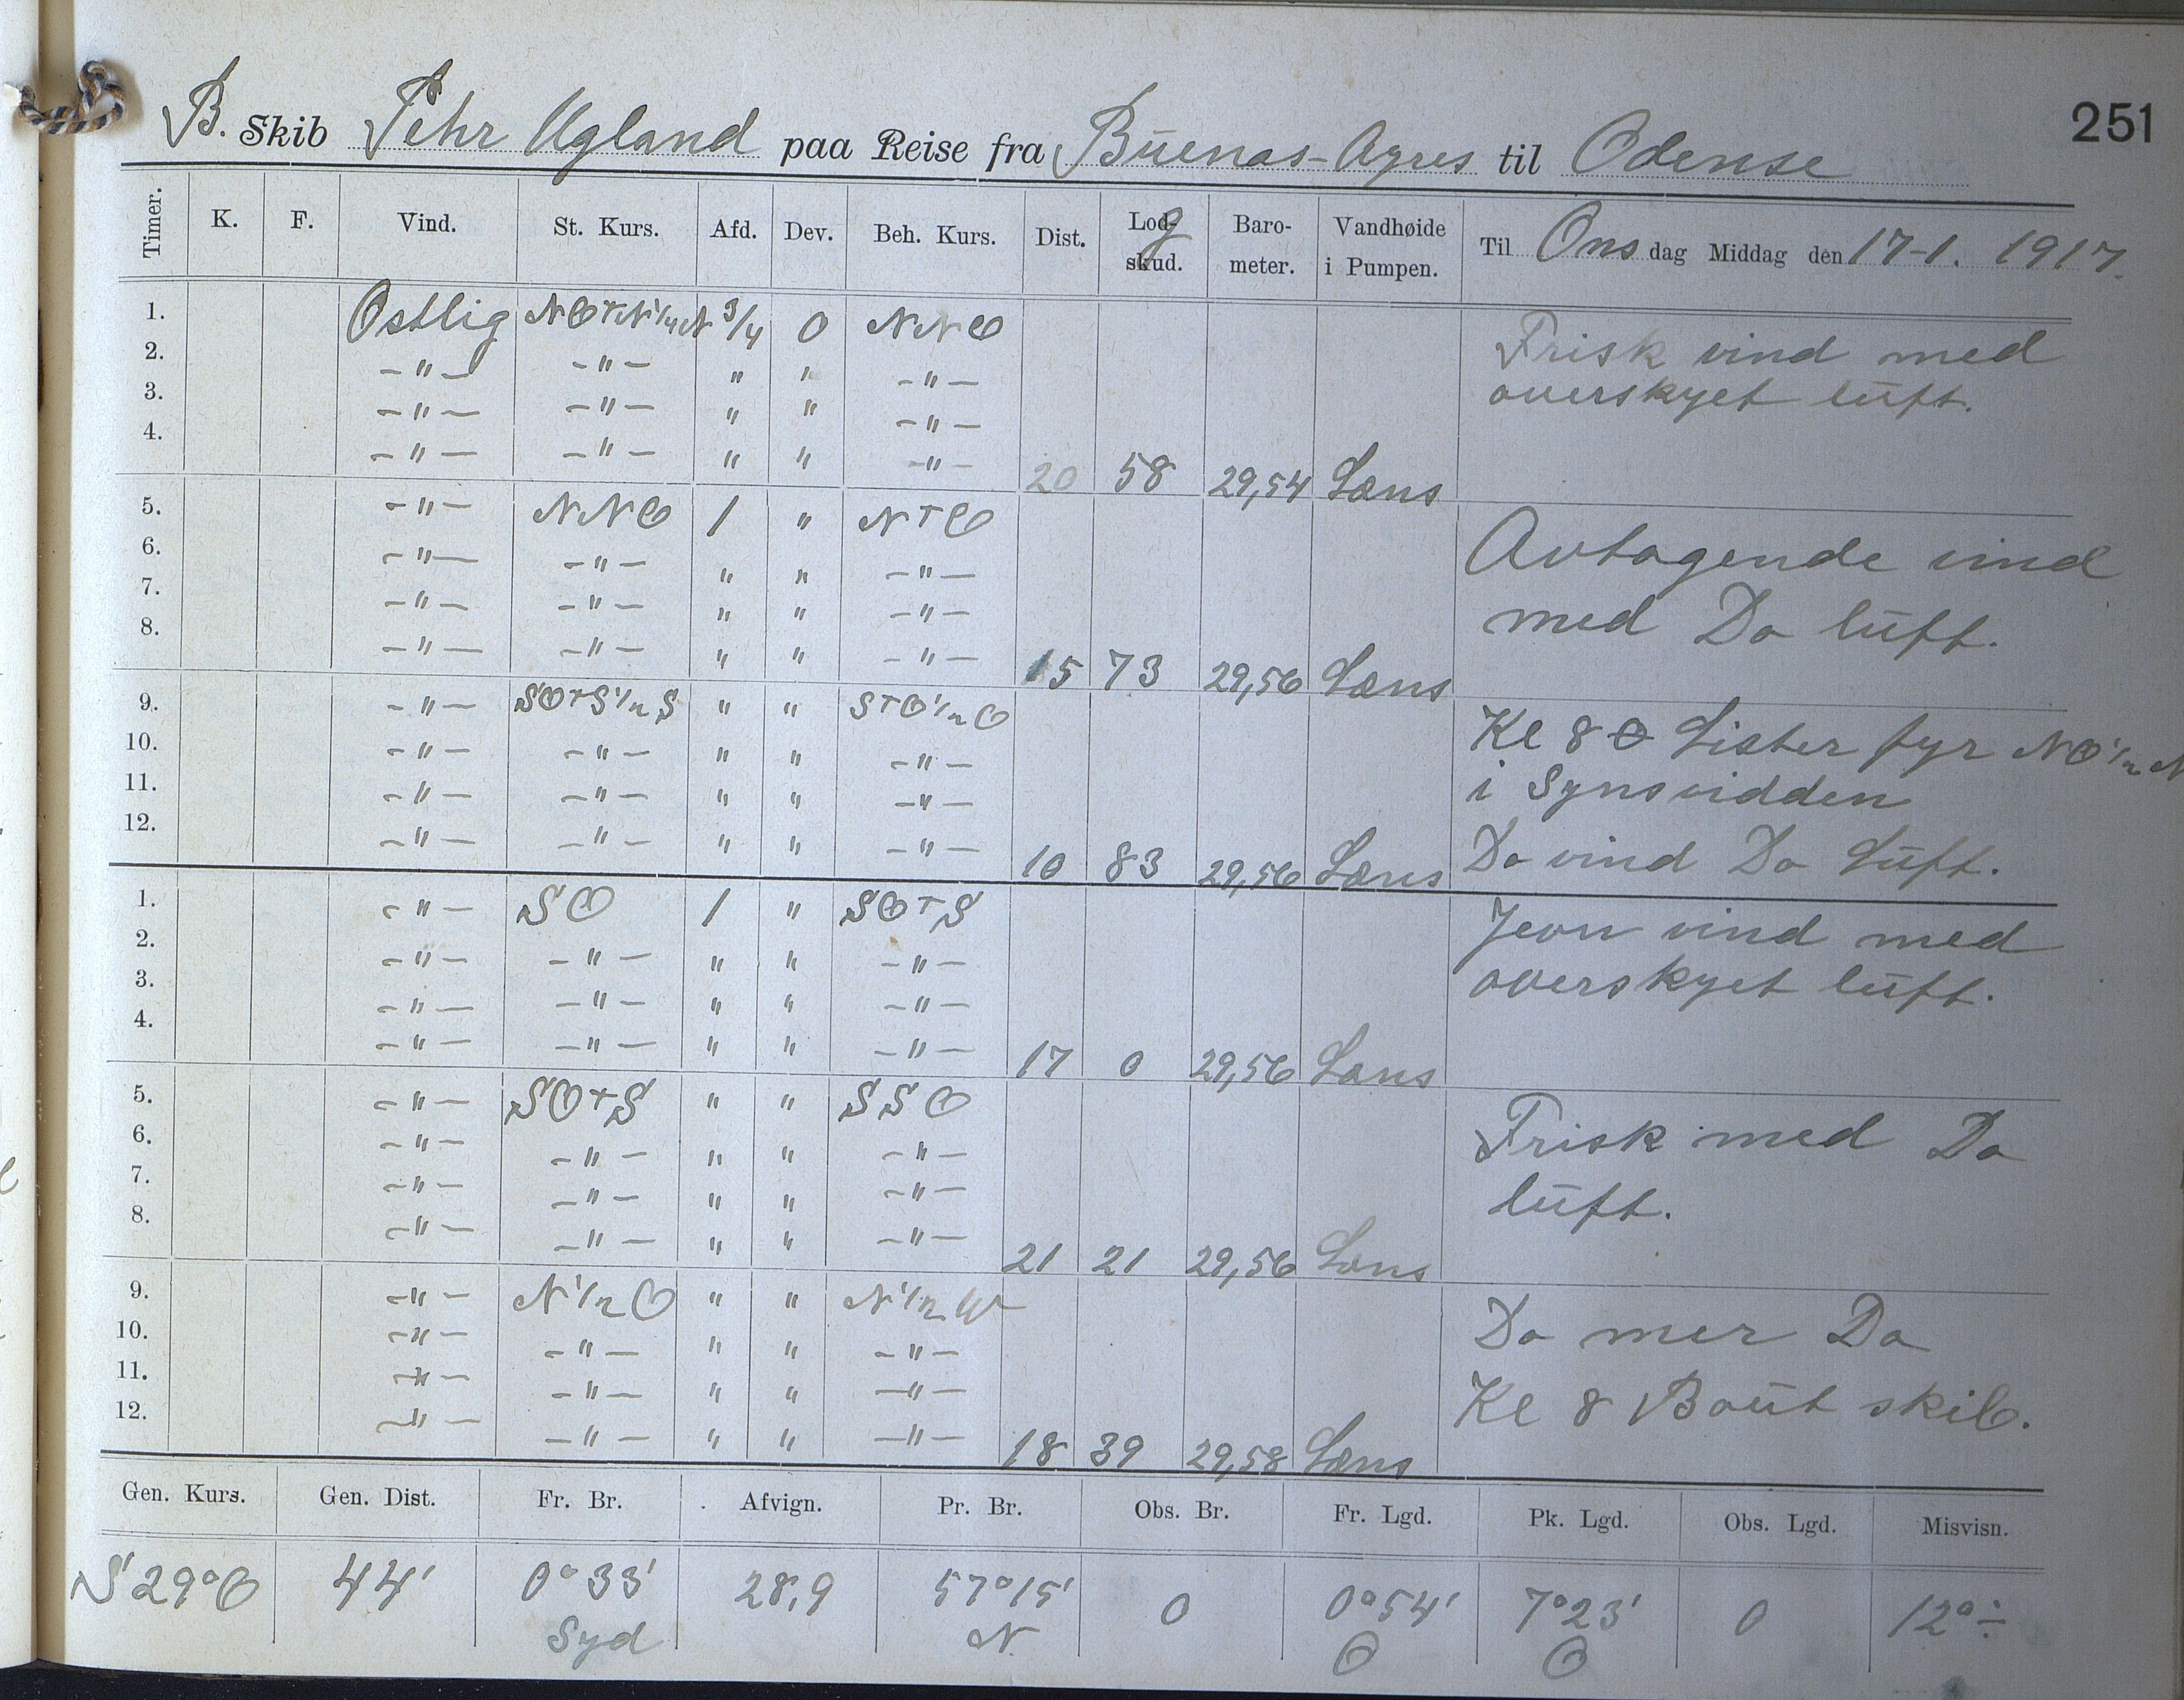 251
B. Skib Pehr Ugland paa Reise fra Buenos-Ayres til Odense
Timer. K. F. Vind. St. Kurs. Afd. Dev. Beh. Kurs. Dist. Log- skud. Baro- meter. Vandhøide i Pumpen. Til Ons dag Middag den 17-1. 1917.
1. Ostlig NOTN 1/4 N 3/4 0 NNO Frisk vind med
2. -"- -"- " " -"- overskyet luft.
3. -"- -"- " " -"-
4. -"- -"- " " -"- 20 58 29,54 Læns
5. -"- NNO 1 " NTO Avtagende vind
6. -"- -"- " " -"- med Do luft.
7. -"- -"- " " -"-
8. -"- -"- " " -"- 15 73 29,56 Læns
9. -"- SOTS 1/2 S " " STO 1/2 O Kl 8 Lister fyr NO 1/2 N
10. -"- -"- " " -"- i Synsvidden
11. -"- -"- " " -"-
12. -"- -"- " " -"- 10 83 29,56 Læns Do vind Do Luft.
1. -"- SO 1 " SOTS Jevn vind med
2. -"- -"- " " -"- overskyet luft.
3. -"- -"- " " -"-
4. -"- -"- " " -"- 17 0 29,56 Læns
5. -"- SOTS " " SSO Frisk med Do
6. -"- -"- " " -"- luft.
7. -"- -"- " " -"-
8. -"- -"- " " -"- 21 21 29,56 Læns
9. -"- N 1/2 O " " N 1/2 W Do mer Do
10. -"- -"- " " -"-
11. -"- -"- " " -"- Kl 8 Baut skib.
12. -"- -"- " " -"- 18 39 29,58 Læns
Gen. Kurs. Gen. Dist. Fr. Br. Afvign. Pr. Br. Obs. Br. Fr. Lgd. Pk. Lgd. Obs. Lgd. Misvisn.
S 29° O 44' 0° 33' 28,9 57° 15' 0 0° 54' 7° 23' 0 12° ÷
Syd N O O